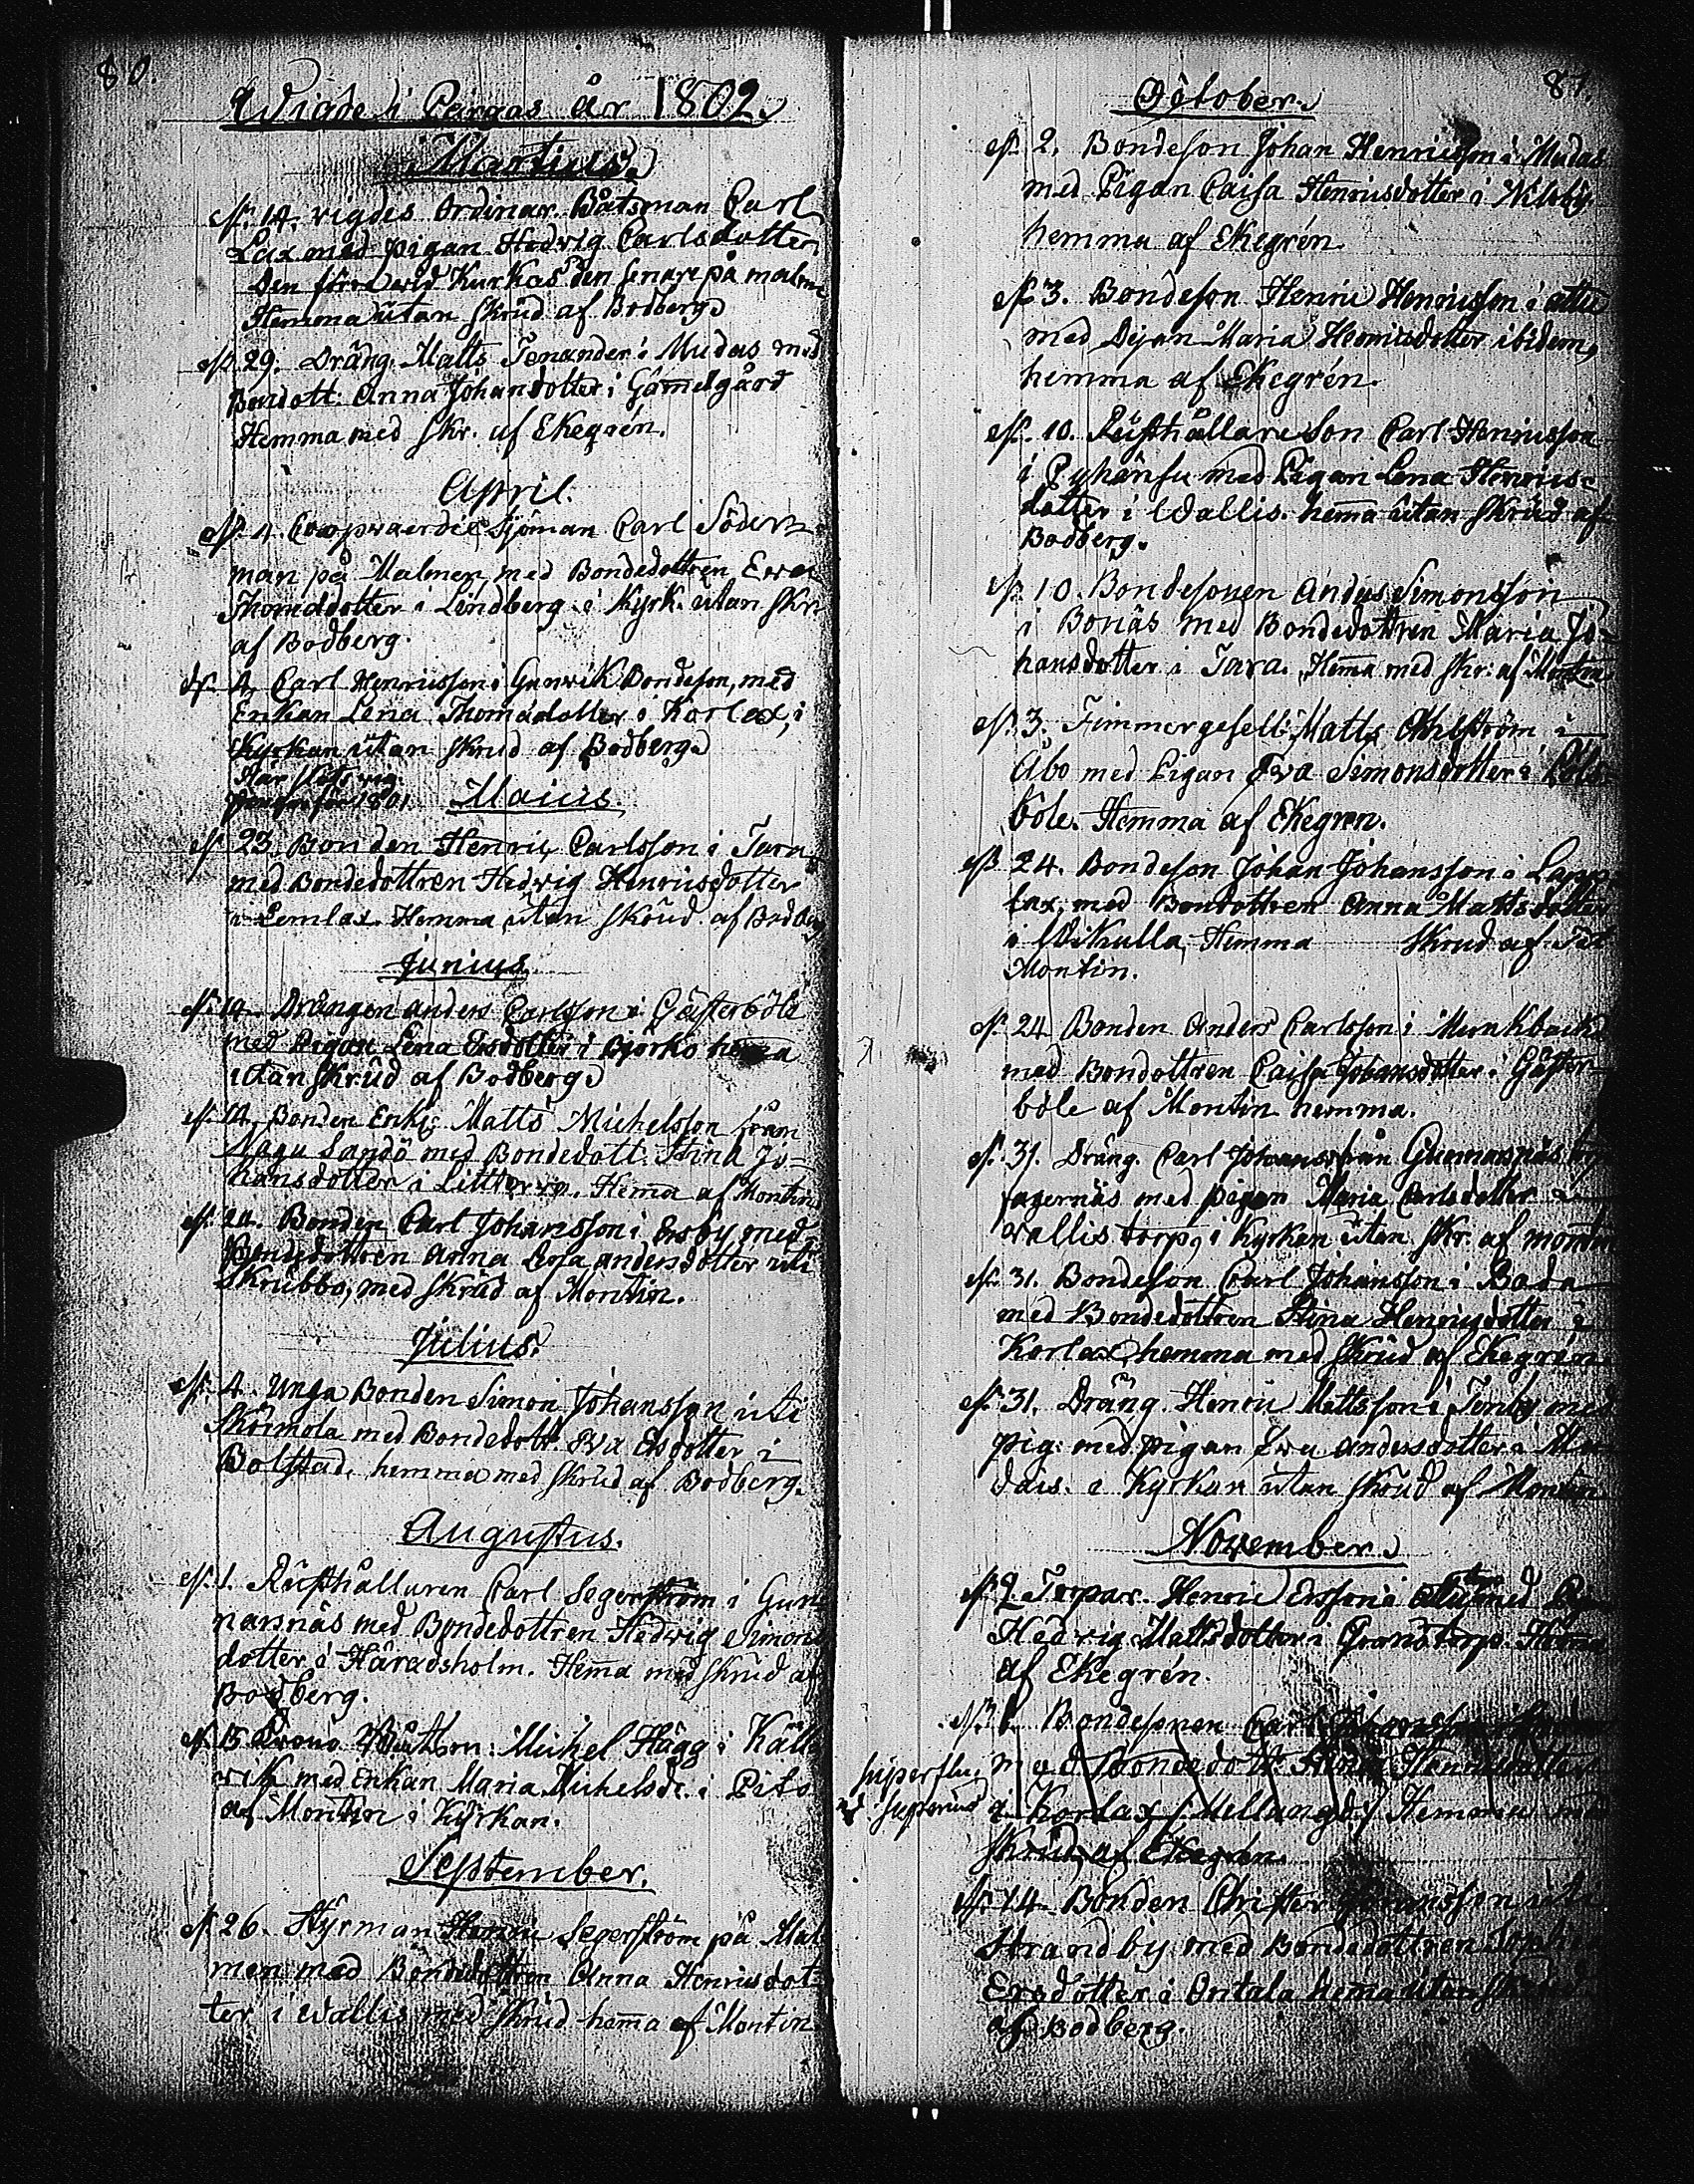 80.
Wigde i Pargas år 1802.
Martius.
d. 14. vigdes Ordinar. Båtsman Carl
Lax med pigan Hedvig Carlsdotter,
den förra wid Kurkas den senare på malmen
Hemma utan skrud af Bodberg.
d. 29. Dräng. Matts Tenander i Mudas med
Bondott: Anna Johansdotter i Gammelgård
Hemma med skr. af Ekegrén.
April.
d. 4. Coopvaerdie Sjöman Carl Söder-
man på Malmen, med Bondedottren Ewa
Thomasdotter i Lindberg i Kyrk. utan skr.
af Bodberg.
d. 4. Carl Henricsson i Gunvik Bondeson, med
Enkan Lena Thomasdotter i Korlax, i
Kyrkan utan skrud af Bodberg.
1801.
Maius.
d. 23. Bonden Henric Carlsson i Tara
med Bondedottren Hedvig Henricsdotter
i Lemlax Hemma utan skrud af Bodberg
Junius.
d. 14. Drängen anders Carlsson i Gästerböle
med Pigan Lena Ersdotter i Bjorko hema
utan skrud af Bodberg.
d. 14. Bonden Enkl: Matts Michelsson från
Nagu Sandö med Bondedott. Stina Jo-
hansdotter i Hemma af Montin
d. 24. Bonden Carl Johansson i Ersby med
Bondedottren Anna Lisa andersdotter uti
Skrubbo, med skrud af Montin.
Julius.
d. 4. Unga Bonden Simon Johansson uti
Skärmola med Bondedott. Eva Ersdotter i
Bolstad, hemma med skrud af Bodberg.
Augustus.
d. 1. Rusthållaren Carl Segerström i Gun-
narsnäs med Bondedottren Hedwig Simons-
dotter i Häradsholm. Hema med skrud af
Bodberg.
d. 15. Krono Båtsm: Michel Hägg i Käll-
vik med Enkan Maria Michelsdr. i Pito
af Montin i Kyrkan.
September.
d. 26. Styrman Henric Segerström på Mal-
men med Bondedottren Anna Henricsdot-
ter i Wallis med skrud hema af Montin
81.
October.
d. 2. Bondeson Johan Henricsson i Mudas
med Pigan Caisa Henricsdotter i Wilsby
hemma af Ekegrén
d. 3. Bondeson Henric Henricsson i attu
med Dejan Maria Henricsdotter ibidem,
hemma af Ekegrén.
d. 10. Rusthållare Son Carl Henricsson
i Pyhänsu med Pigan Lena Henrics-
dotter i Wallis. hema utan skrud af
Bodberg.
d. 10. Bondesonen Anders Simonsson
i Bonäs med Bondedottren Maria Jo-
hansdotter i Tara. Hema med skr: af Montin.
d. 3. Timmergesell: Matts Ahlström i
Åbo med Pigan Eva Simonsdotter i
böle. Hemma af Ekegren.
d. 24. Bondeson Johan Johansson i Lapp-
lax, med Bondottren Anna Mattsdotter
i Wikulla, Hemma skrud af
Montin.
d. 24 Bonden Anders Carlsson i Munkback
med Bondottren Caisa Johansdotter i Gäster-
böle af Montin hemma.
d. 31. Dräng. Carl Johanss från Gunnarsnäs
fagernäs med pigan Maria Carlsdotter i
wallis torp, i Kyrkan utan skr. af montin
d. 31. Bondeson Carl Johansson i Boda
med Bondedottren Stina Henricsdotter i
Korlax, hemma med skrud af Ekegrén.
d. 31. Dräng. Henric Mattsson i Tenby med
pig: med pigan Eva andersdotter i Mu-
dais. i Kyrkan utan skrud af Montin
November.
d. 2 Torpar. Henric Ersson i med
Hedvig Mattsdotter i Grandtorp. Hema
af Ekegrén.
d. Bondesonen Carl Johansson
med Bondedott. Stina Henricsdotter
superflu.
superius
i Korlax /: Mellangd:/ Hemma med
skrud af Ekegrén.
d. 14. Bonden Christer Göransson uti
Strandby med Bondedottren Sophia
Ersdotter i Ontala hema utan skrud
af Bodberg.